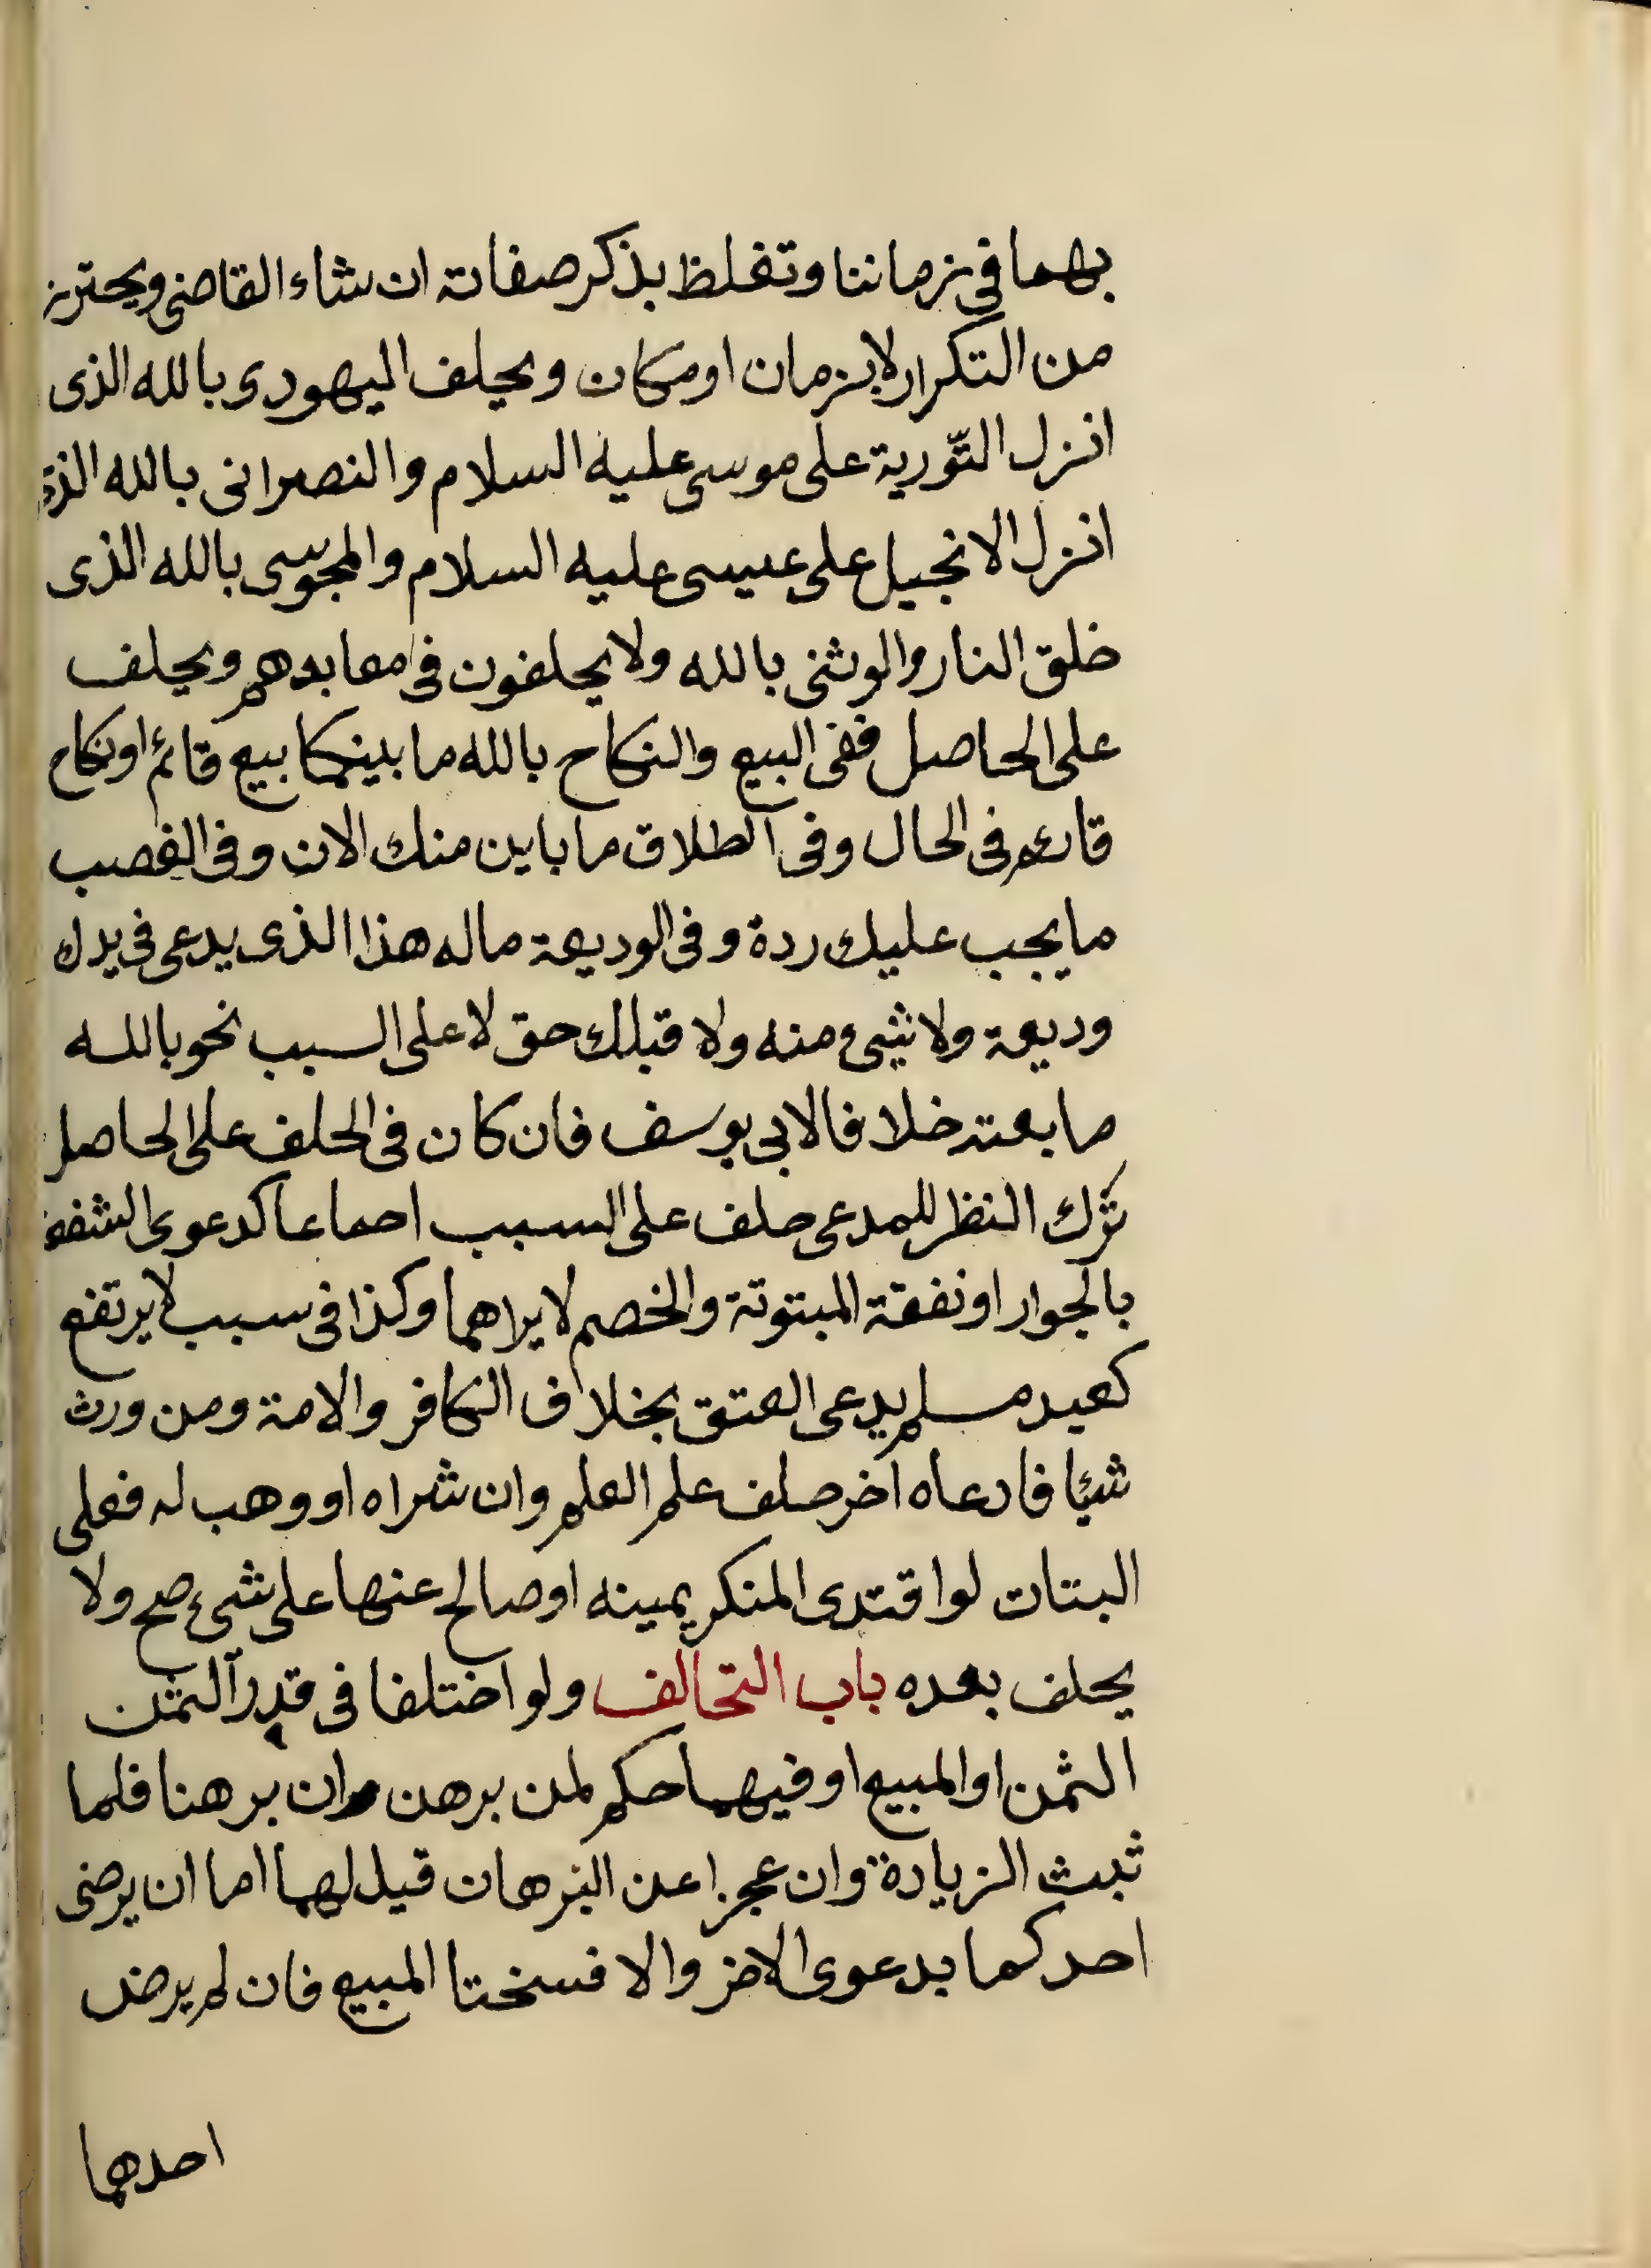 بهما فى زماننا وتغلظ بذكر صفاته ان شاء القاضى ويحترز
من التكرار لا بزمان او مكان ويحلف اليهودى بالله الذى
انزل التّورية على موسى عليه السلام والنصرانى بالله الذى
انزل الانجيل على عيسى عليه السلام والمجوسى بالله الذى
خلق النار والوثنى بالله ولا يحلفون فى معابدهم ويحلف
على الحاصل ففى البيع والنكاح بالله ما بينكما بيع قائم او نكاح
قائم فى الحال وفى الطلاق ما باين منك الان وفى الغصب
ما يجب عليك ردة وفى الوديعة ماله هذا الذى يدعى فى يدك
وديعة ولا شىء منه ولا قبلك حق لا على السبب نحو بالله
ما بعته خلافا لابى يوسف فان كان فى الحلف على الحاصل
ترك النظر للمدعى حلف على السبب احماعا كدعوى الشفعة
بالجوار او نفقة المبتوتة والخصم لا يراهما وكذا فى سبب لا يرتفع
كعبد مسلم يدعى العتق بخلاف الكافر والامة ومن ورث
شيئا فادعاه اخر حلف على العلم وان شراه او وهب له فعلى
البتات لو اقتدى المنكر يمينه او صالح عنها على شىء صح ولا
يحلف بعده باب التحالف ولو اختلفا فى قدر الثمن
الثمن او المبيع او فيهما حكم لمن برهن وان برهنا فلما
ثبت الزيادة وان عجزا عن البرهان قيل لهما اما ان يرضى
احدكما بدعوى الاخر والا فسختا المبيع فان لم يرض
احدهما